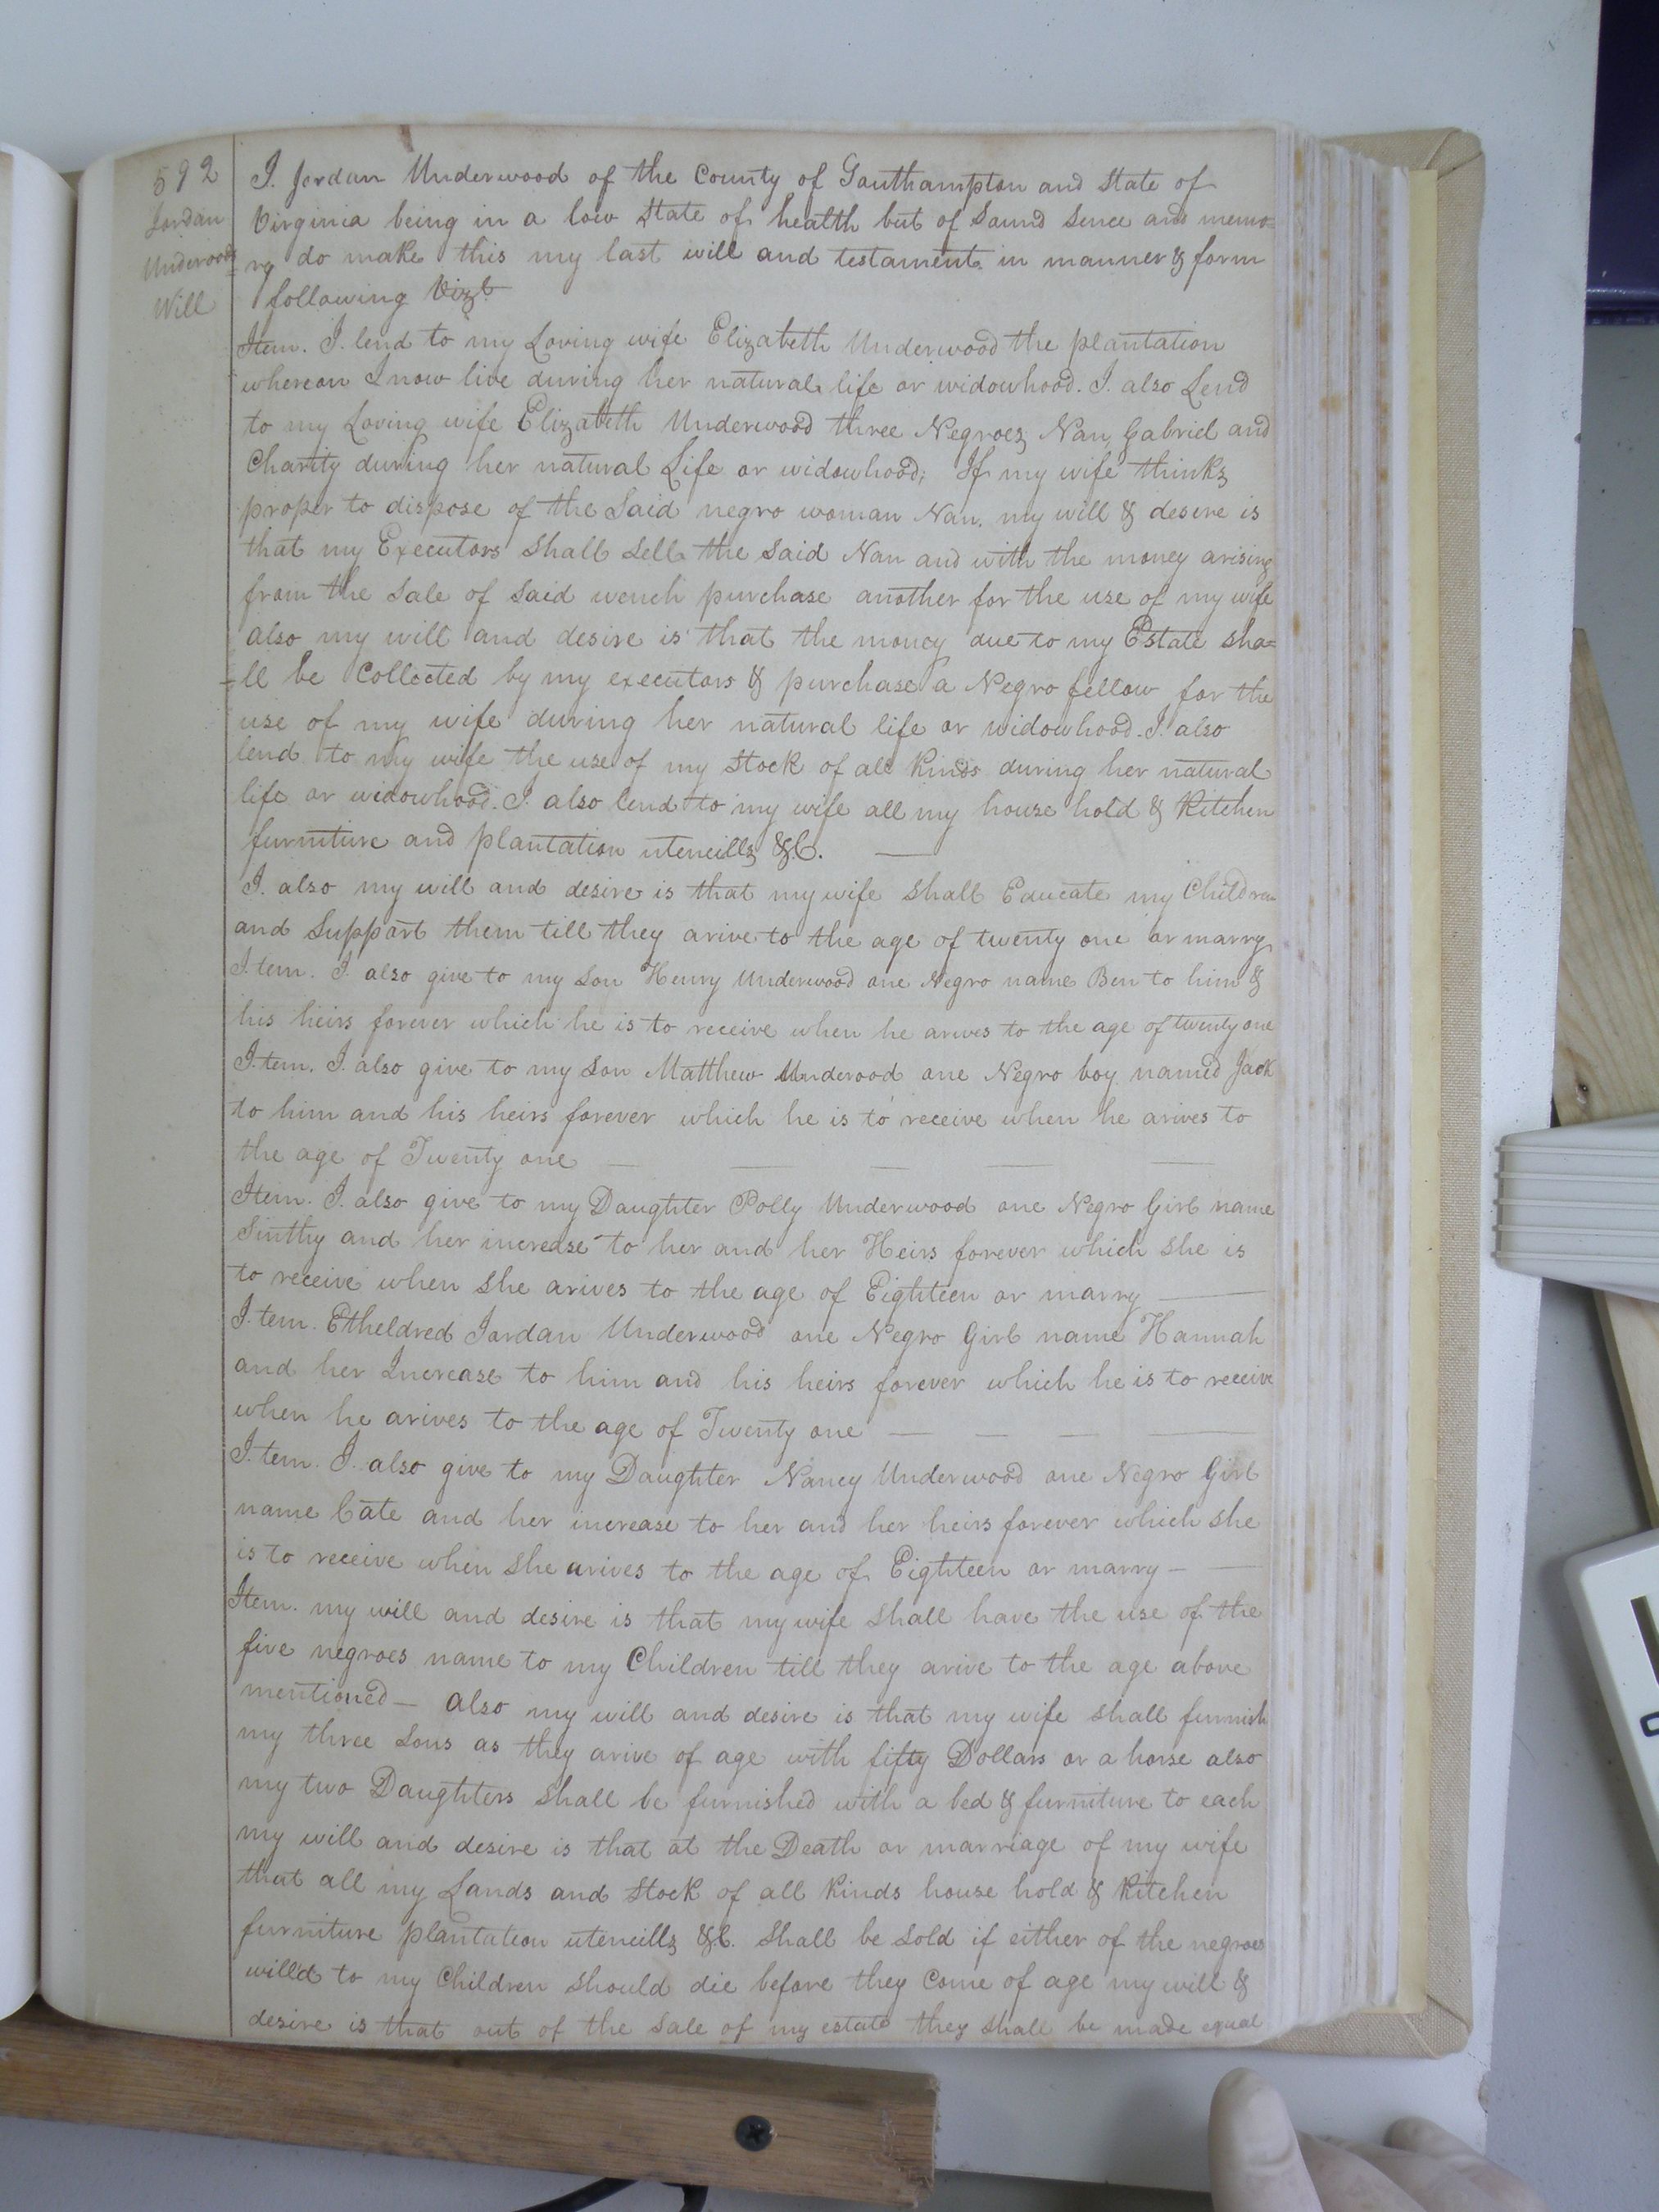 592
Jordan
Underwoods
Will
I. Jordan Underwood of the County of Southampton and State of
Virginia being in a low State of health but of Sound Sence and memo=
ry do make this my last will and testament in manner & form
following Vizt
Item. I. lend to my Loving wife Elizabeth Underwood the plantation
whereon I now live during her natural life or widowhood. I. also Lend
to my Loving wife Elizabeth Underwood three Negroes Nan, Gabriel and
Charity during her natural Life or widowhood; If my wife thinks
proper to dispose of the Said negro woman Nan, my will & desire is
that my Executors Shall Sell the Said Nan and with the money arising
from the Sale of Said wench purchase another for the use of my wife
also my will and desire is that the money due to my Estate sha=
=ll be Collected by my executors & purchase a Negro fellow for the
use of my wife during her natural life or widowhood. I. also
lend to my wife the use of my Stock of all Kinds during her natural
life or widowhood. I. also lend to my wife all my house hold & Kitchen
furniture and plantation utencills &C.
I. also my will and desire is that my wife Shall Educate my Children
and Support them till they arive to the age of twenty one or marry
I.tem. I. also give to my Son Henry Underwood one Negro name Ben to him &
his heirs forever which he is to receive when he arives to the age of twenty one
I.tem. I. also give to my Son Matthew Underood one Negro boy named Jack
to him and his heirs forever which he is to receive when he arives to
the age of Twenty one
Item. I. also give to my Daughter Polly Underwood one Negro Girl name
Sinthy and her increase to her and her Heirs forever which She is
to receive when She arives to the age of Eighteen or marry
I.tem. Etheldred Jordan Underwood one Negro Girl name Hannah
and her Increase to him and his heirs forever which he is to receive
when he arives to the age of Twenty one
I.tem. I. also give to my Daughter Nancy Underwood one Negro Girl
name Cate and her increase to her and her heirs forever which She
is to receive when She arives to the age of Eighteen or marry
Item. my will and desire is that my wife Shall have the use of the
five negroes name to my Children till they arive to the age above
mentioned — also my will and desire is that my wife Shall furnish
my three Sons as they arive of age with fifty Dollars or a horse also
my two Daughters Shall be furnished with a bed & furniture to each
my will and desire is that at the Death or marriage of my wife
that all my Lands and Stock of all Kinds house hold & Kitchen
furniture plantation utencills &C. Shall be Sold if either of the negroes
will'd to my Children Should die before they Come of age my will &
desire is that out of the Sale of my estate they Shall be made equal